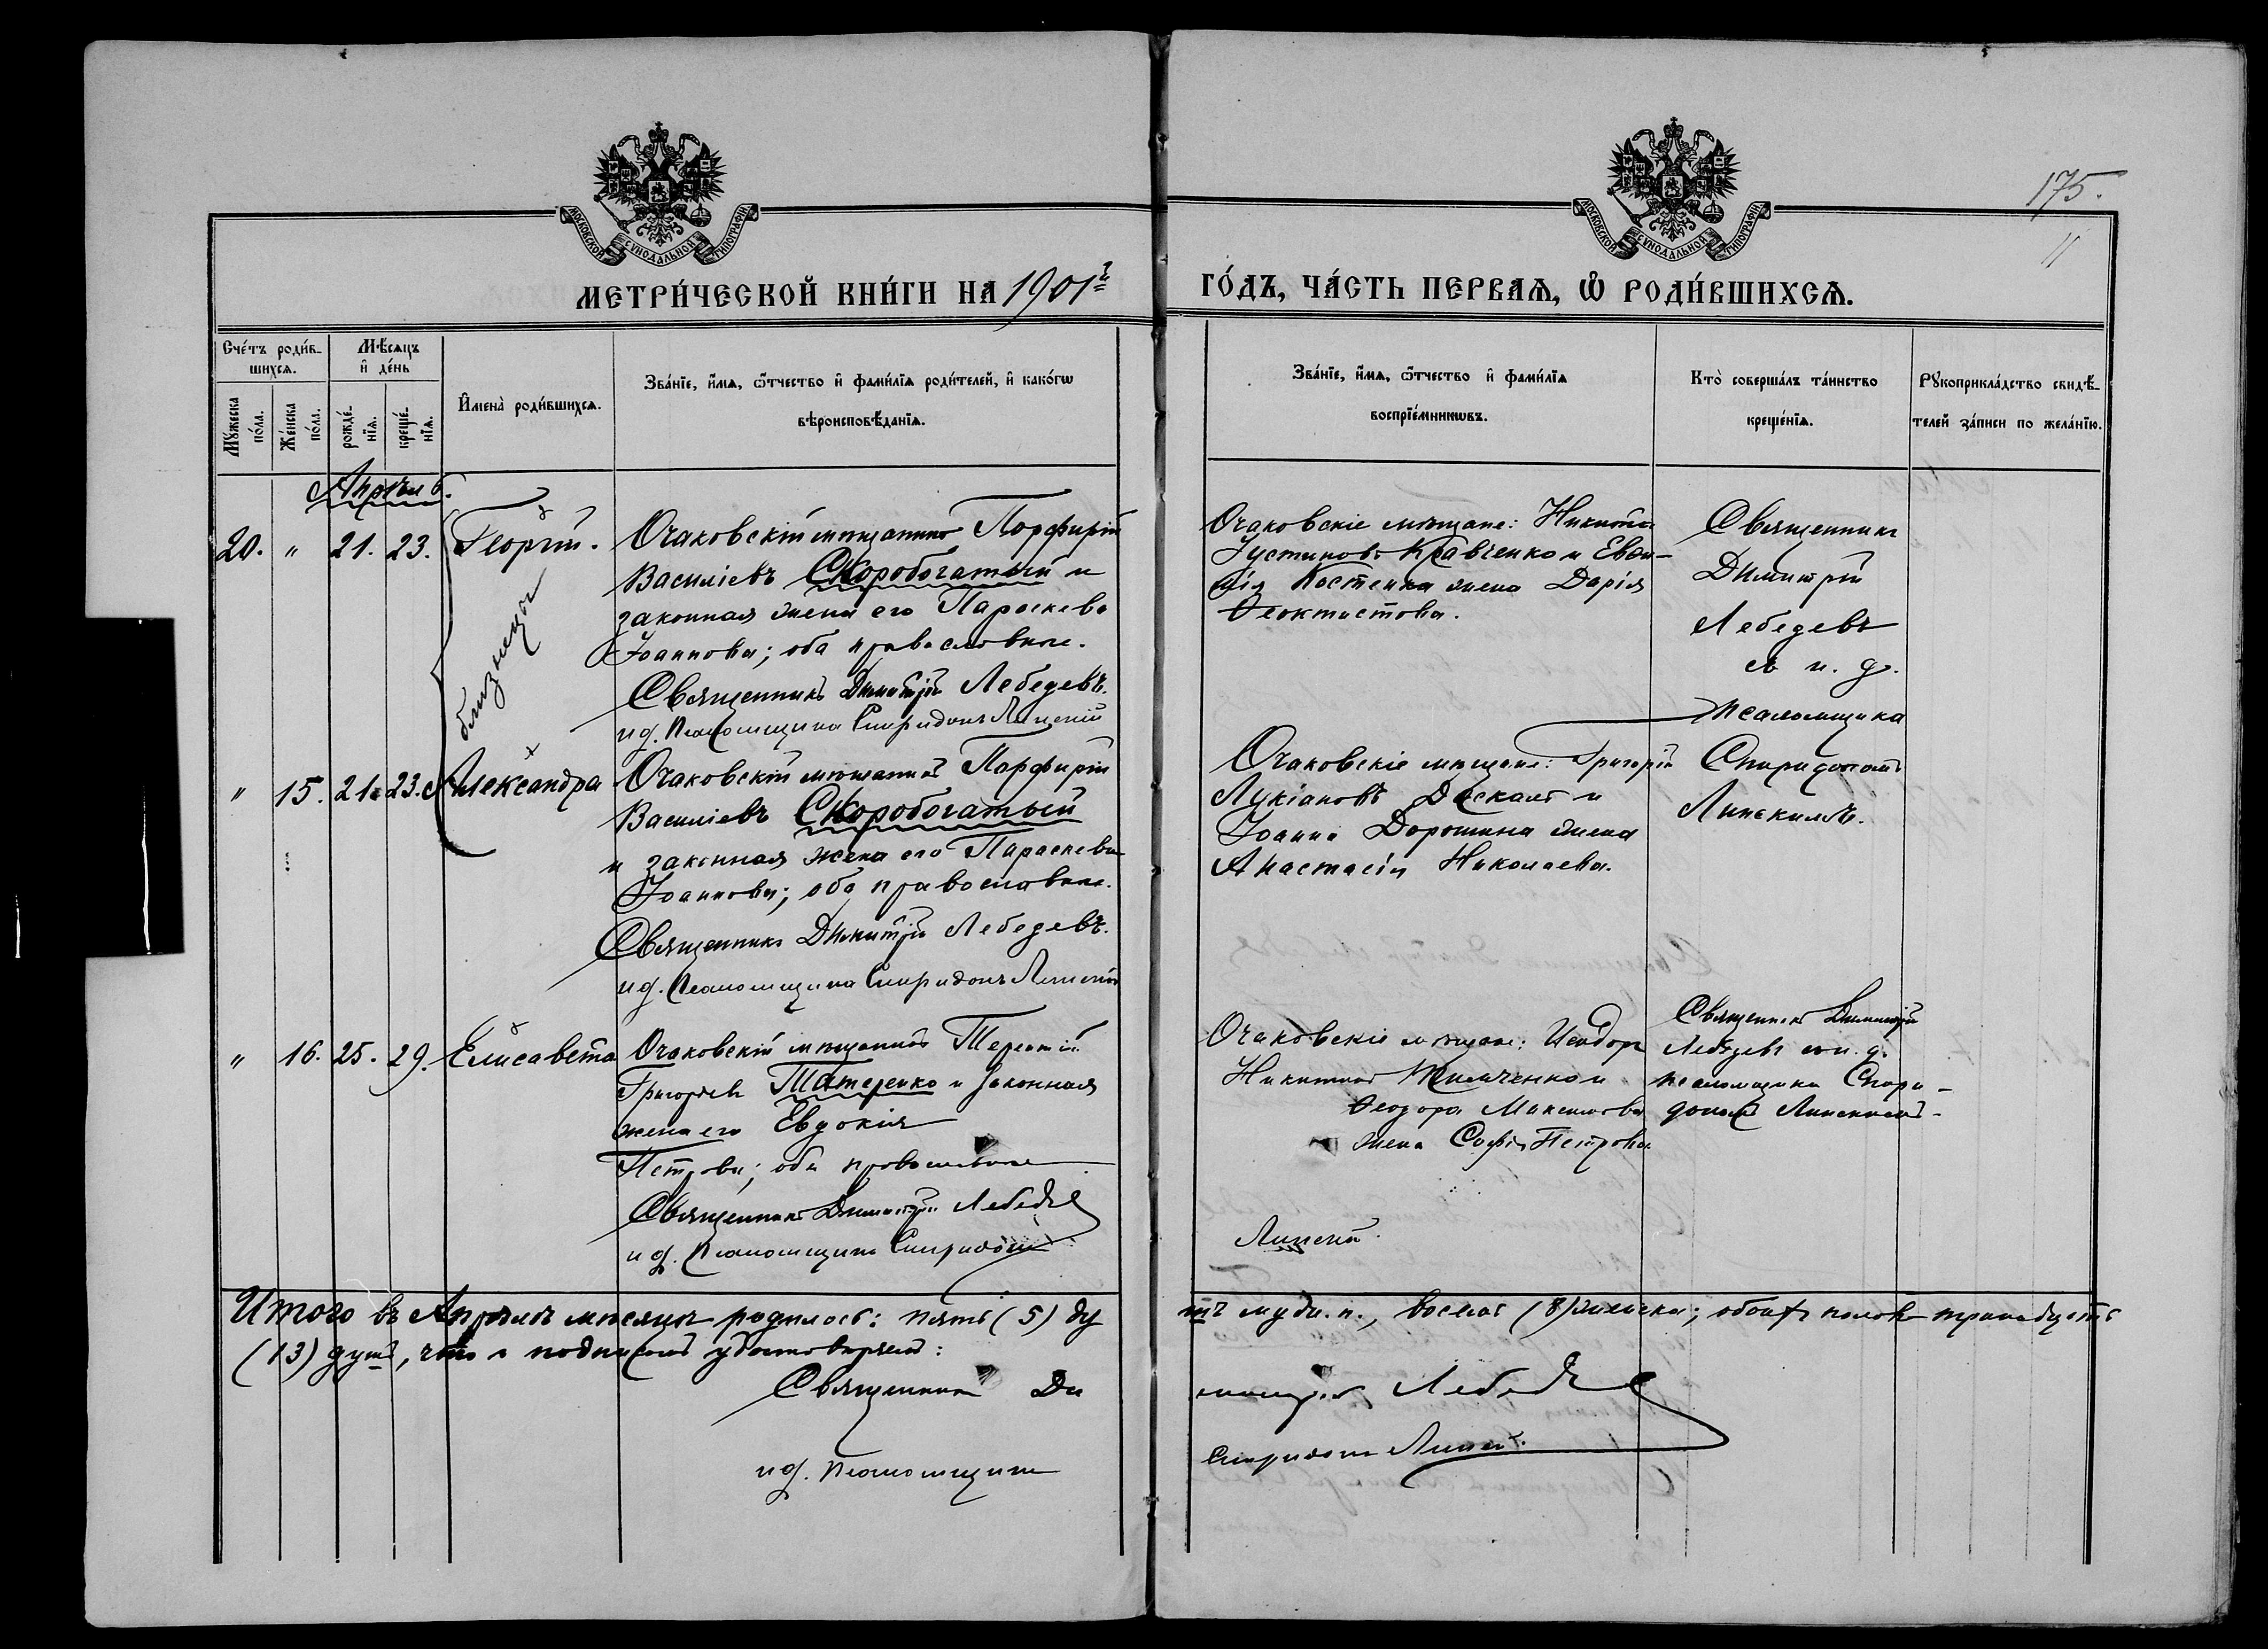 175.
11
МОСКОВСКОЙ СѴНОДАЛЬНОЙ ТИПОГРАФІИ
МОСКОВСКОЙ СѴНОДАЛЬНОЙ ТИПОГРАФІИ
МЕТРИ́ЧЕСКОЙ КНИ́ГИ НА 1901й
ГО́ДЪ, ЧА́СТЬ ПЕРВАѦ, Ѡ РОДИ́ВШИХСѦ.
Сче́тъ роди́в-
шихсѧ.
Мꙋ́жеска по́ла.
Же́нска по́ла.
Мѣ́сѧцъ
и҆ де́нь
рожде́-
нїѧ.
креще́-
нїѧ.
И҆мена̀ роди́вшихсѧ.
Зва́нїе, и҆́мѧ, ѻ҆́тчество и҆ фами́лїѧ роди́телей, и҆ како́гѡ
вѣроисповѣ́данїѧ.
Зва́нїе, и҆́мѧ, ѻ҆́тчество и҆ фами́лїѧ
воспрїе́мникѡвъ.
Кто̀ соверша́лъ та́инство
креще́нїѧ.
Рꙋкоприкла́дство свидѣ́-
телей за́писи по жела́нїю.
Апрѣль.
20. " 21. 23. Георгій.
близнецы
Очаковскій мѣщанинъ Порфирій
Василіевъ Скоробогатый и
законная жена его Параскева
Іоаннова; оба православные.
Священникъ Димитрій Лебедевъ.
и д. Псаломщика Спиридонъ Линскій
Очаковскіе мѣщане: Никита
Іустиновъ Кравченко и Евѳи-
мія Костенка жена Дарія
Ѳеоктистова.
Священникъ
Димитрій
Лебедевъ
съ и. д.
псаломщика
Спиридономъ
Линскимъ.
" 15. 21. 23. Александра
Очаковскій мѣщанинъ Порфирій
Василіевъ Скоробогатый
и законная жена его Параскева
Іоаннова; оба православные.
Священникъ Димитрій Лебедевъ.
и д. Псаломщика Спиридонъ Линскій
Очаковскіе мѣщане: Григорій
Лукіановъ Даскалъ и
Іоанна Дорошина жена
Анастасія Николаева.
" 16. 25. 29. Елисавета
Очаковскій мѣщанинъ Терентій
Григорьевъ Татаренко и законная
жена его Евдокія
Петрова; оба православные
Священникъ Димитрій Лебедевъ
и д. Псаломщика Спиридонъ
Линскій.
Очаковскіе мѣщане: Исидоръ
Никитинъ и
Ѳеодора Максимова
жена Софія Петрова.
Священникъ Димитрій
Лебедевъ съ и. д.
псаломщика Спири-
дономъ Линскимъ.
Итого въ Апрѣлѣ мѣсяцѣ родилось: пять (5) ду
шъ муж. п., восемь (8) женска; обоихъ половъ тринадцать
(13) душъ, что и подписомъ удостовѣряемъ:
Священникъ Ди
митрій Лебедевъ
и д. Псаломщика
Спиридонъ Линскій.